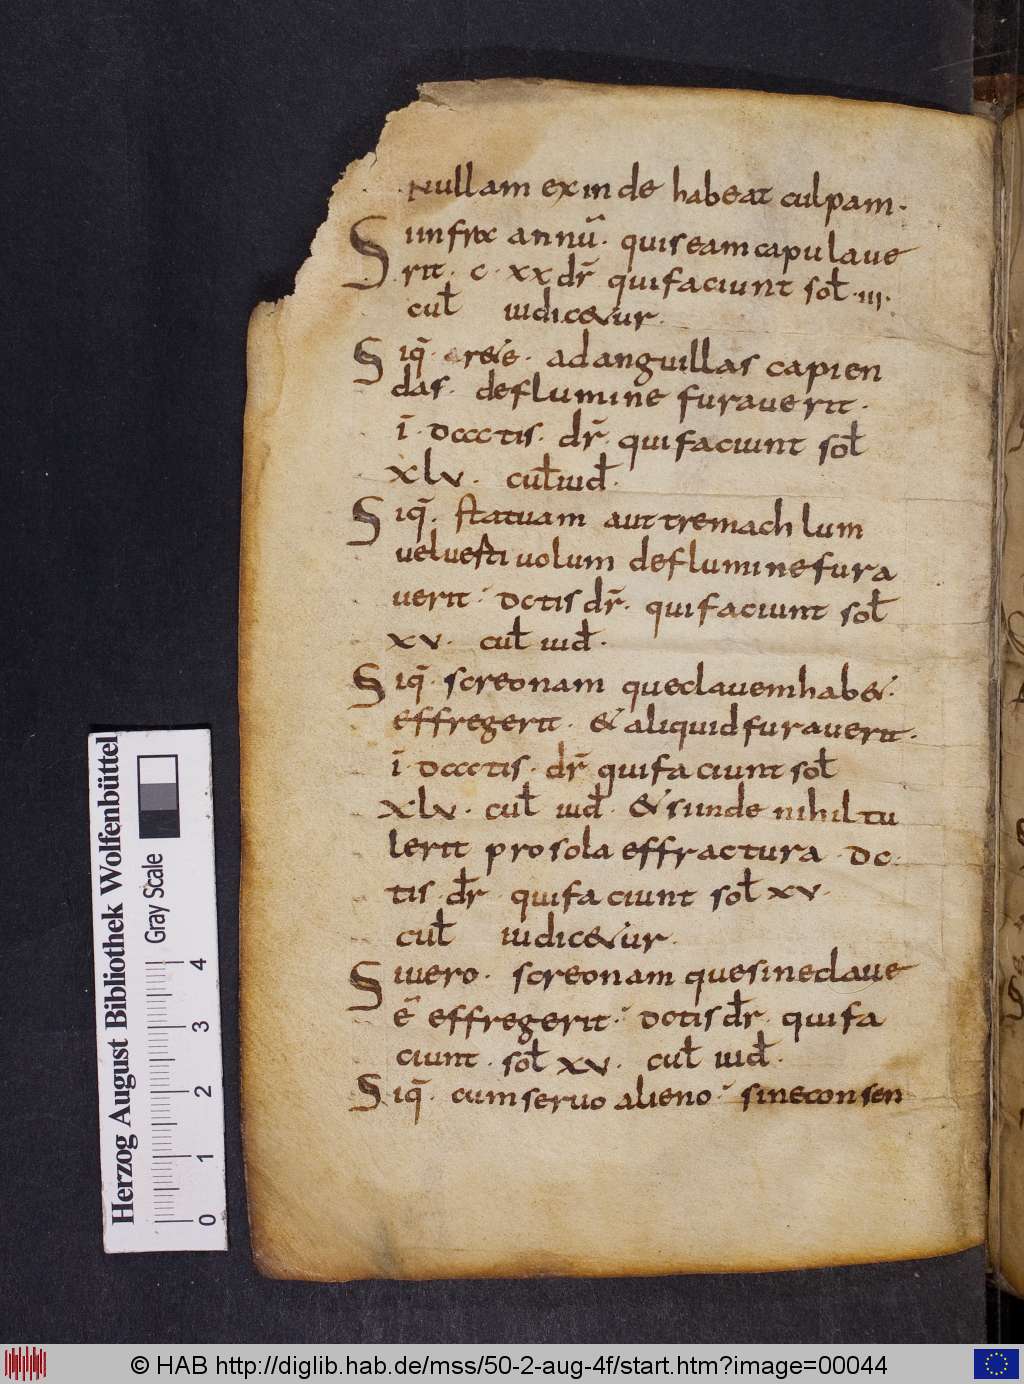 Nullam exinde habeat culpam.
Si infra annū. quis eam capulaue
rit. c. xx dr̄ qui faciunt sol̄. iii.
cul̄ iudicetur.
Siq̄. rete. ad anguillas capien
das. de flumine furauerit.
ī. dccc tis. dr̄. qui faciunt sol̄
xlv. cul̄ iud̄.
Siq̄. statuam aut tremachlum
vel vestiuolum de flumine fura
uerit. dc tis dr̄. qui faciunt sol̄
xv. cul̄ iud̄.
Siq̄. screonam que clauem habet.
effregerit. & aliquid furauerit.
ī. dccc tis. dr̄ qui faciunt sol̄
xlv. cul̄ iud̄. & si inde nihil tu
lerit pro sola effractura. dc.
tis. dr̄ qui faciunt sol̄ xv.
cul̄ iudicetur.
Si uero. screonam que sine claue
ē effregerit. dc tis dr̄. qui fa
ciunt. sol̄ xv. cul̄ iud̄.
Siq̄. cum seruo alieno. sine consen
Herzog August Bibliothek Wolfenbüttel
Gray Scale
0 1 2 3 4
© HAB http://diglib.hab.de/mss/50-2-aug-4f/start.htm?image=00044